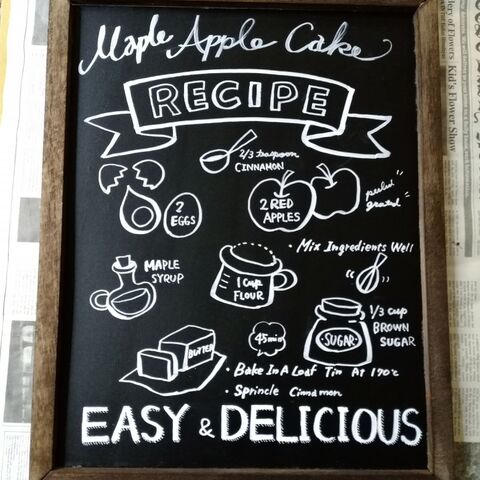 Maple Apple Cake
RECIPE
2/3 teaspoon
CINNAMON
2
EGGS
2 RED
APPLES
grated
• Mix Ingredients Well
MAPLE
SYRUP
1 Cup
FLOUR
1/3 cup
BROWN
SUGAR
SUGAR
BUTTER
45min
• Bake In A Loaf Tin At 170℃
• Sprincle Cinnamon
EASY & DELICIOUS
Kid's Flower Show